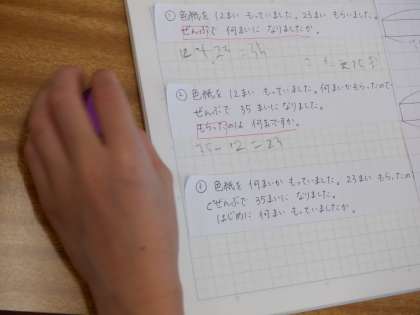 ① 色紙を 12まい もっていました。23まい もらいました。
ぜんぶで 何まいに なりましたか。
12+23=35
② 色紙を 12まい もっていました。何まいか もらったので
ぜんぶで 35まいに なりました。
もらったのは 何まですか。
35-12=23
③ 色紙を 何まいか もっていました。23まい もらったの
でぜんぶで 35まいに なりました。
はじめに 何まい もっていましたか。